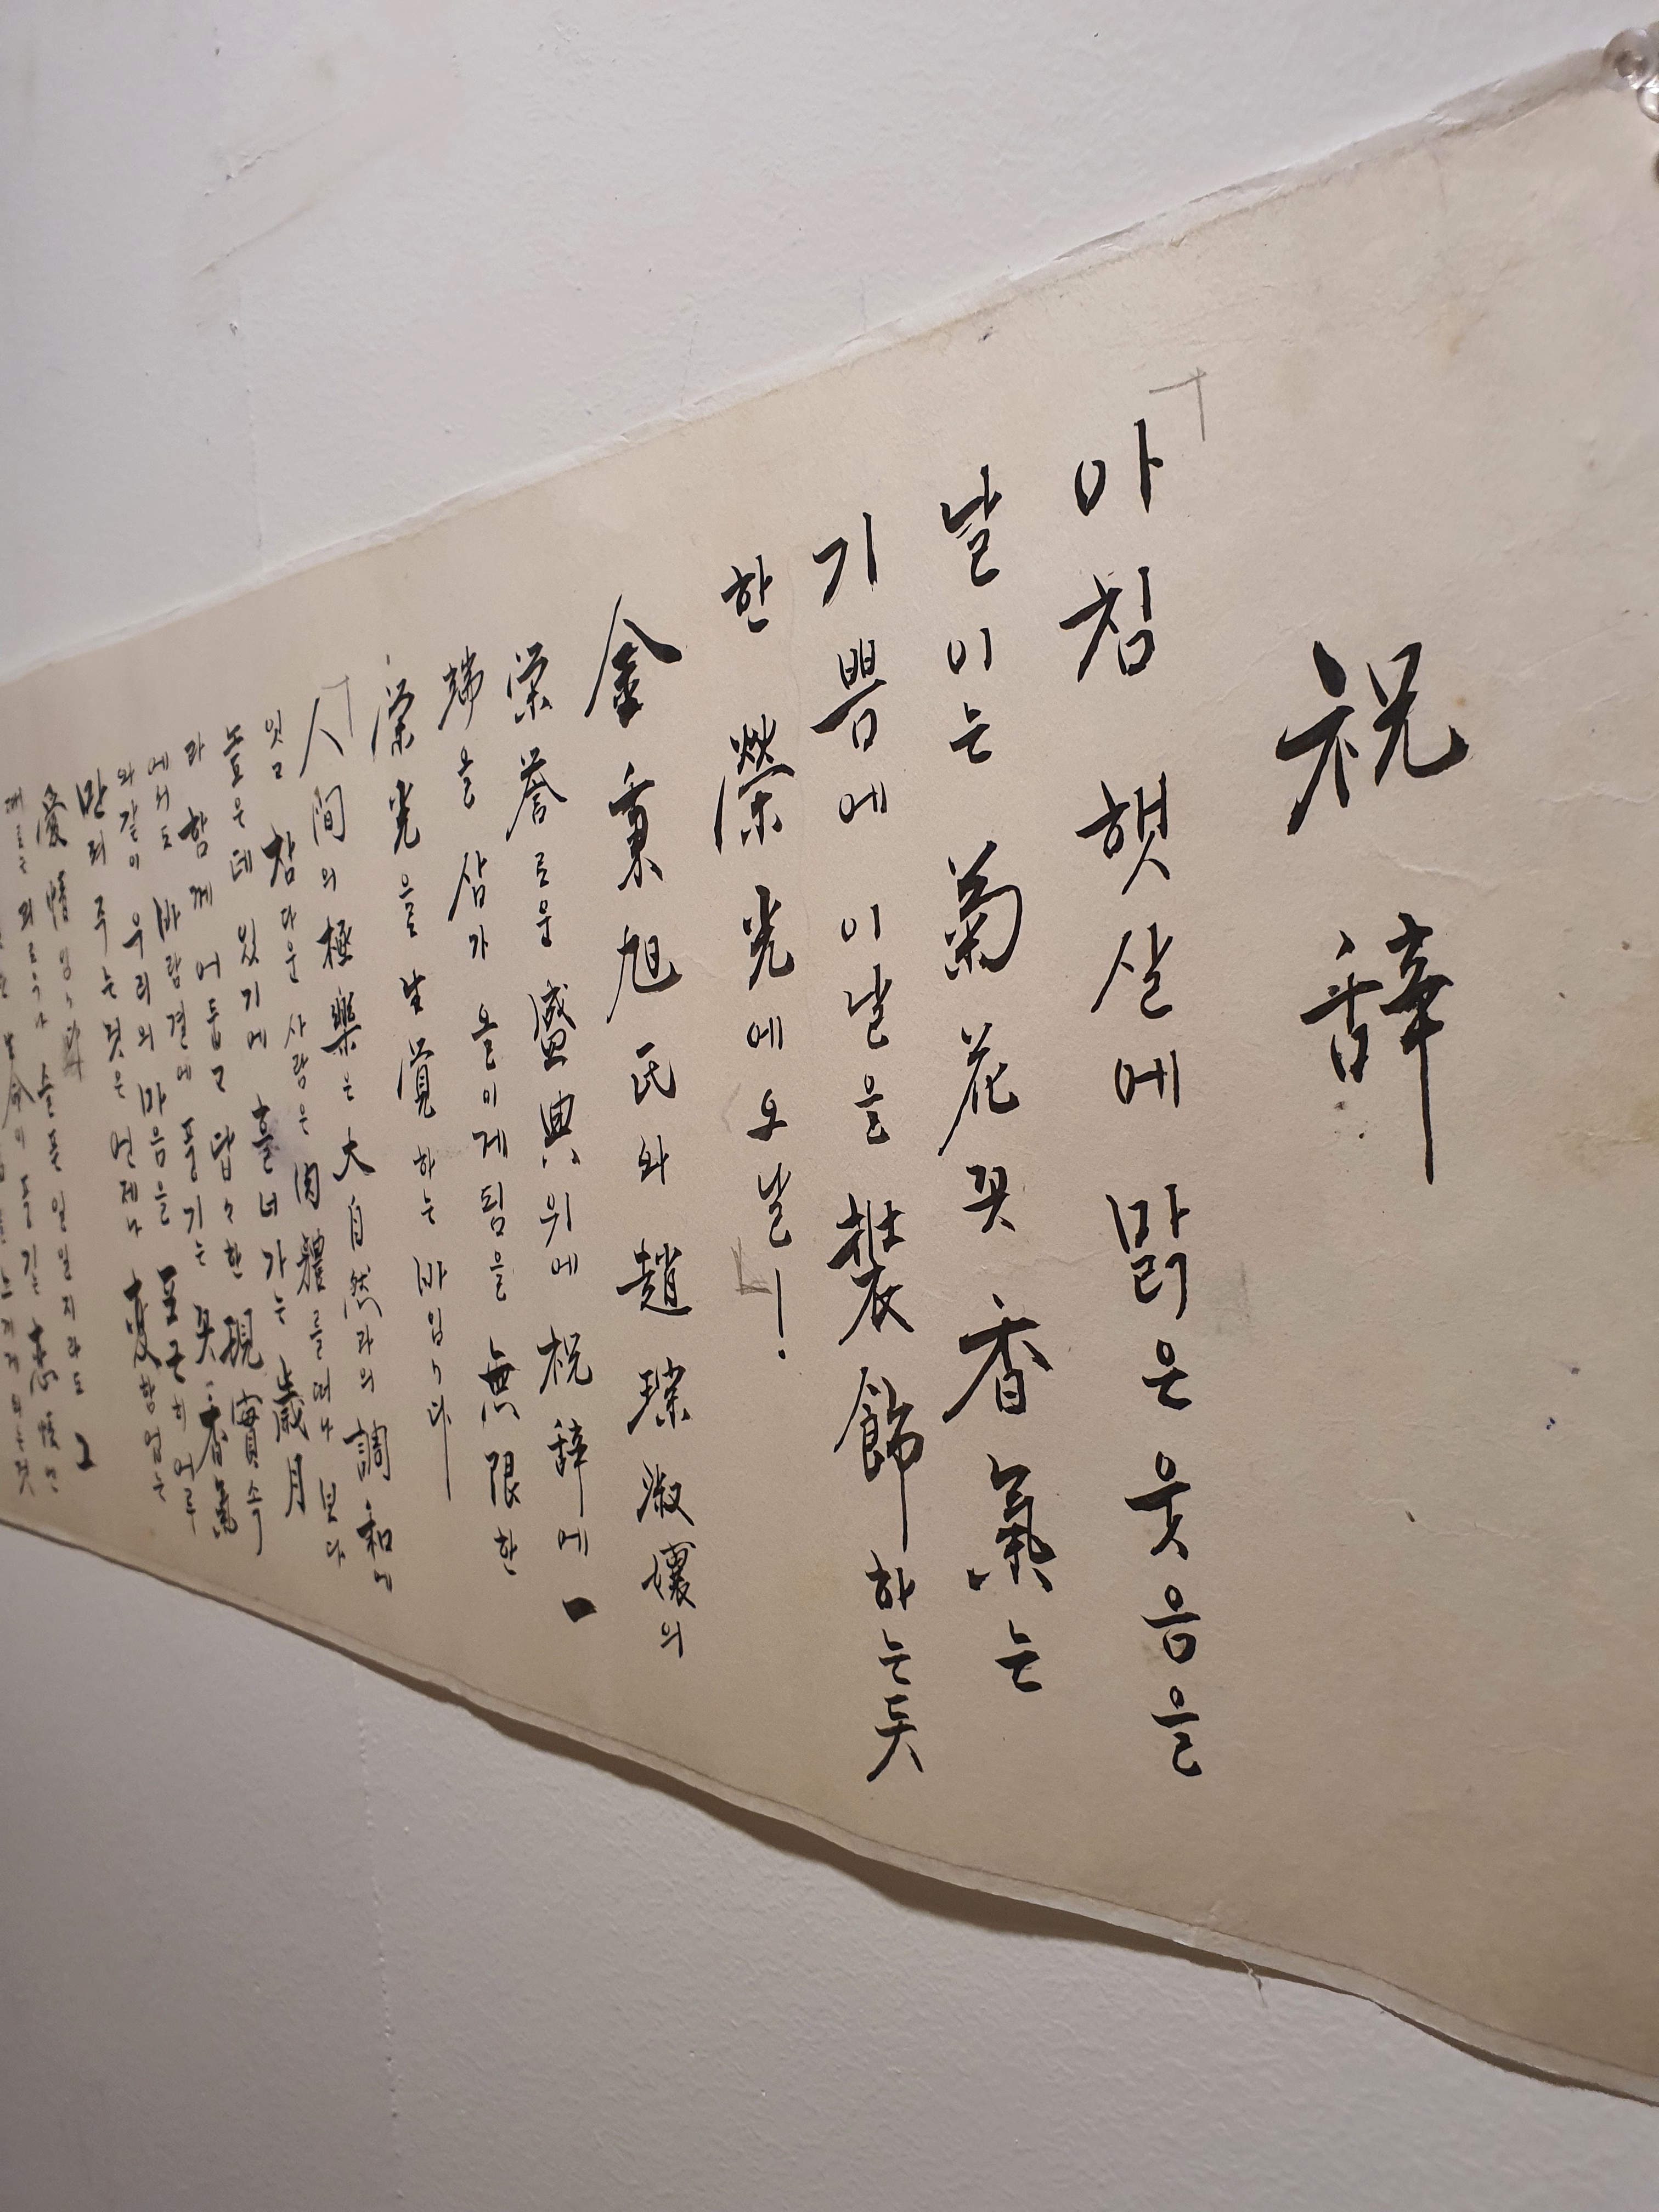 祝辞
아침 햇살에 맑은 웃음을
날이는 菊花꽃 香氣는
기쁨에 이날을 裝飾하는듯
한 榮光에 오날!
金秉旭氏와 趙璨淑孃의
榮譽로운 盛典위에 祝辞에
端을 삼가 올이게됨을 無限한
榮光을 生覺하는 바입니다
人间의 極樂은 大自然과의 調和에
잇고 참다운 사람은 肉體를떠나 보다
높은데 있기에 흘너가는 歲月
과 함께 어둡고 답々한 現實속
에서도 바람결에 풍기는 꽃香氣
와같이 우리의 마음을 포근히 어루
만져주는것은 언제나 変함없는
愛情입니다
슬픈일일지라도 그